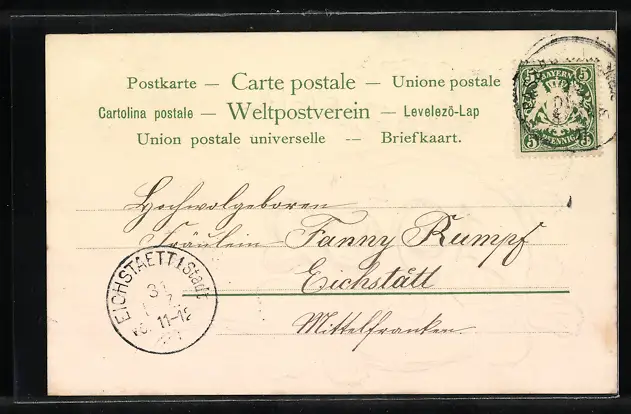 Postkarte — Carte postale — Unione postale
Cartolina postale — Weltpostverein — Levelező-Lap
Union postale universelle -- Briefkaart.
5 BAYERN 5
5 PFENNIG 5
Hochwolgeboren
Fräulein Fanny Rumpf
Eichstätt
Mittelfranken.
EICHSTAETT I Stadt
31
11-12